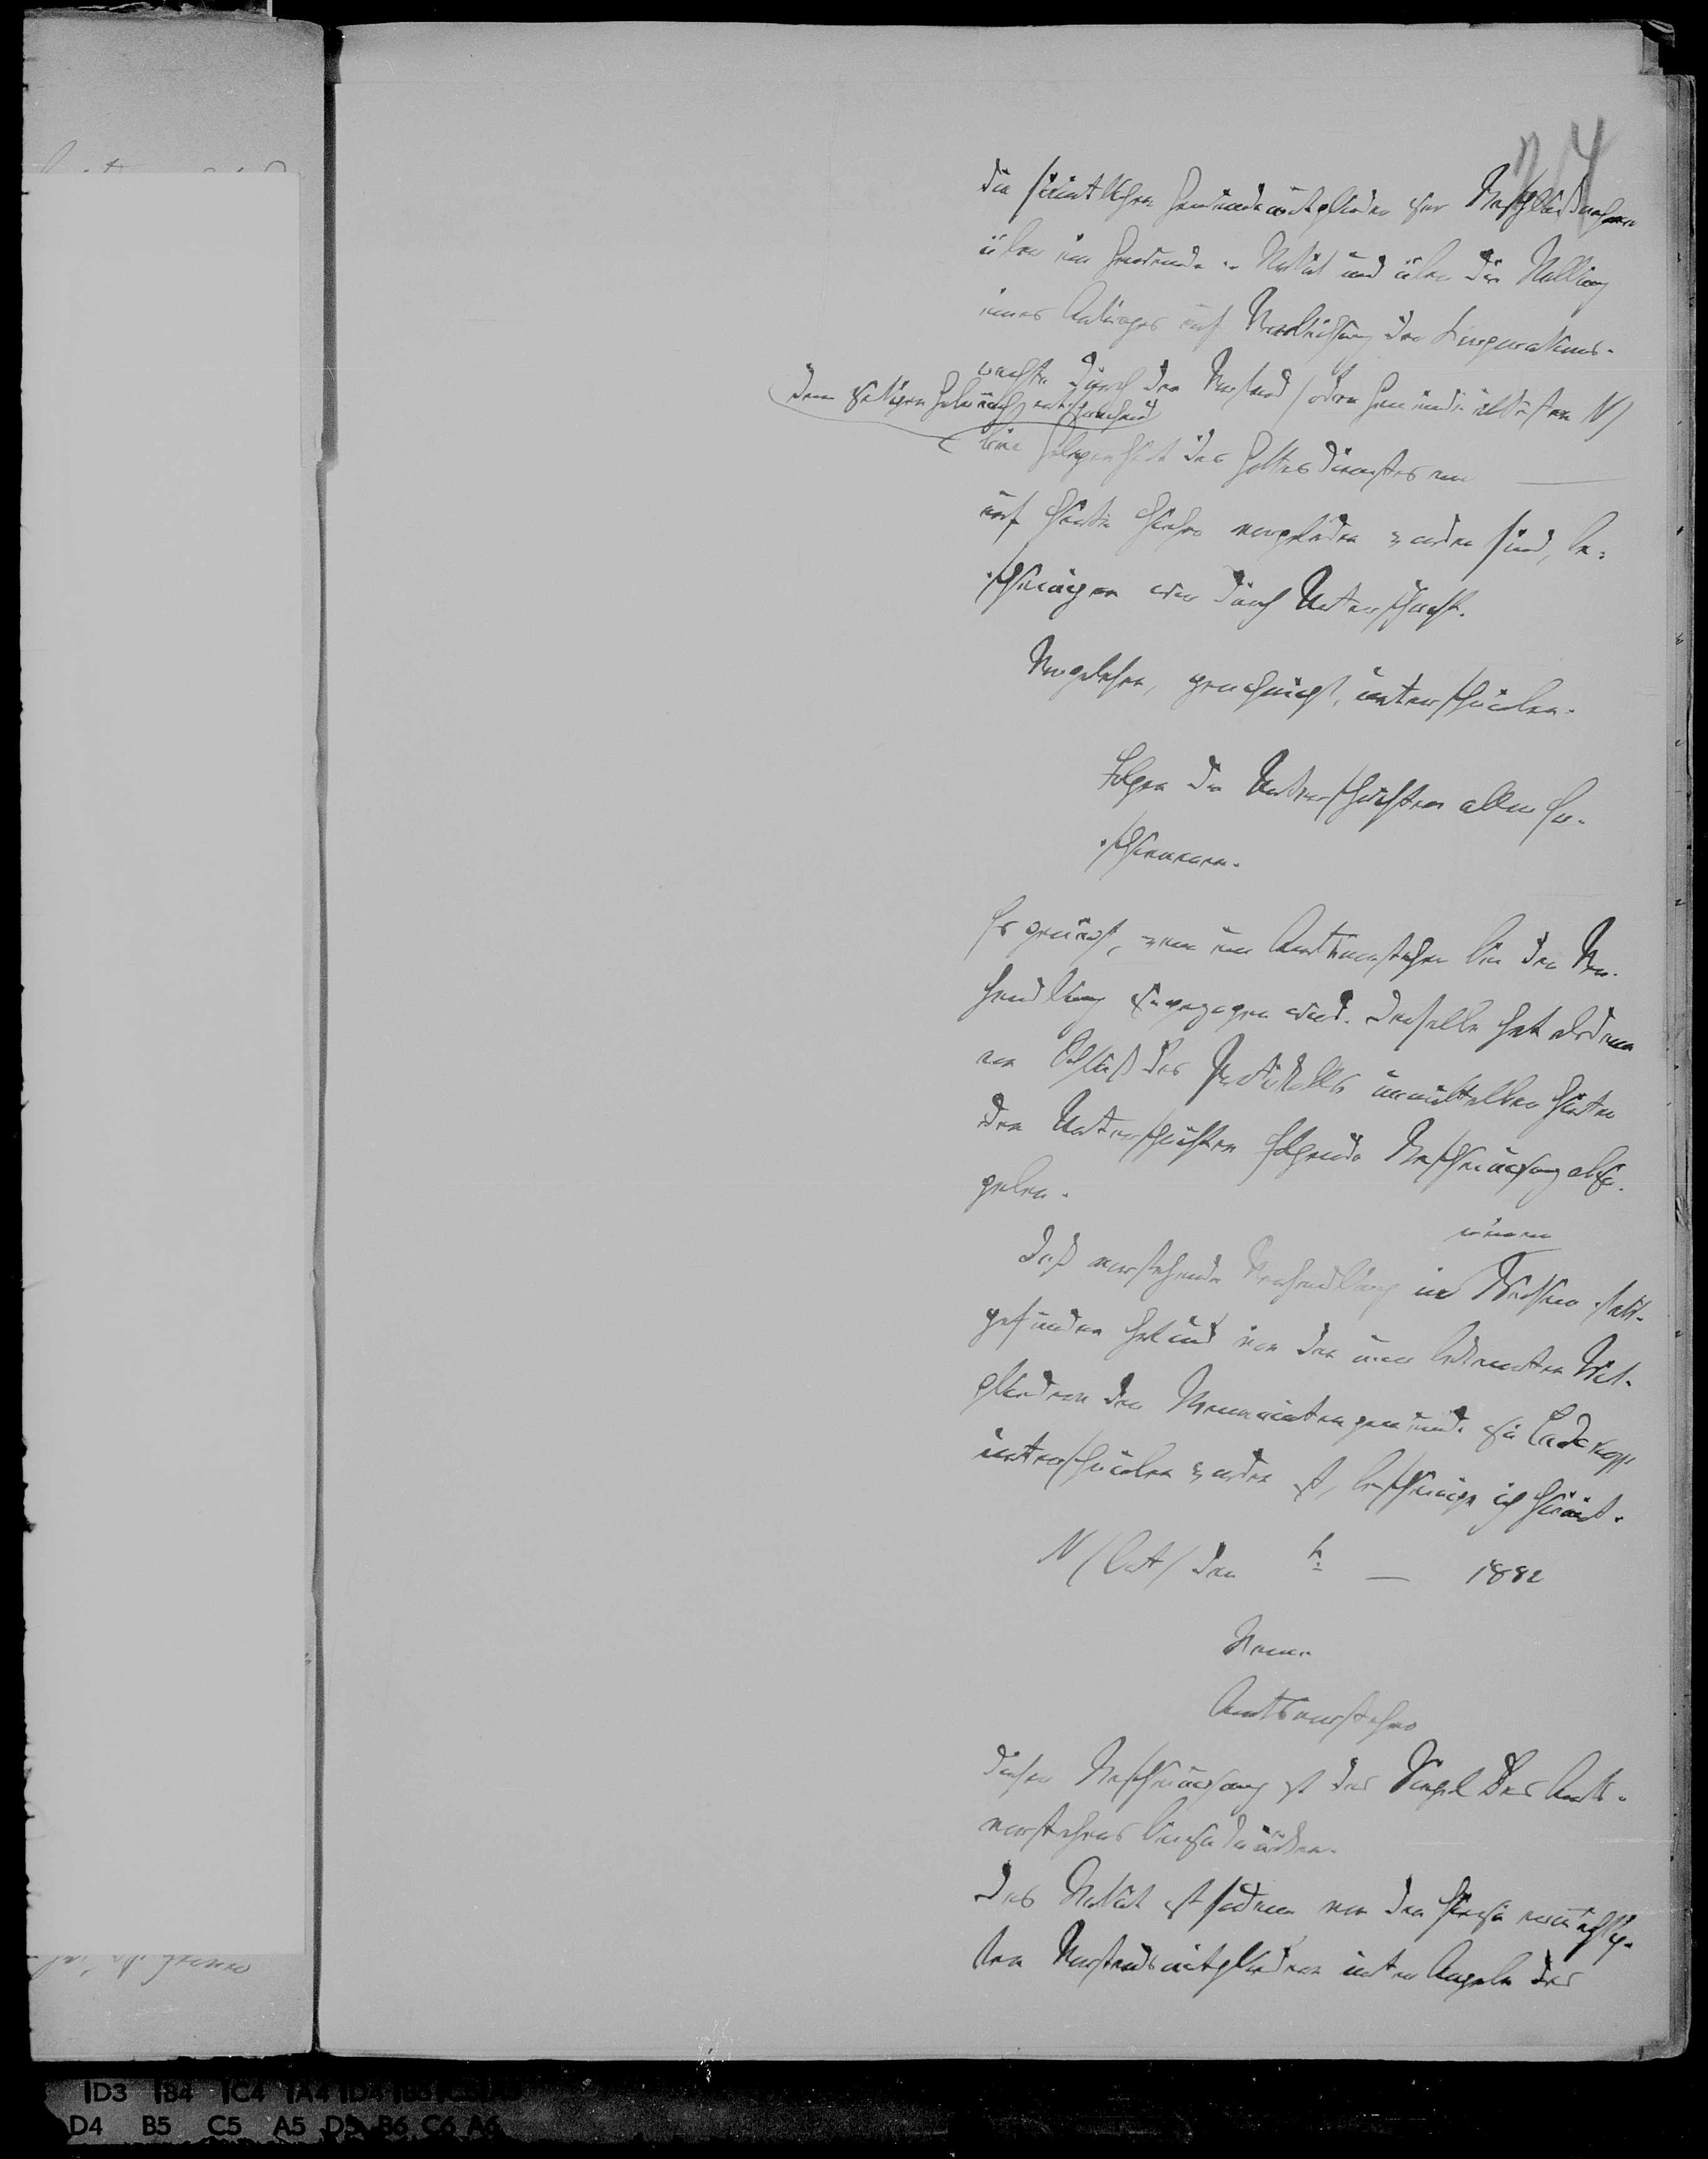 74
die sämtlichen Gemeindemitglieder zur Beschlußnahme
über ein Gemeinde-Statut und über die Stellung
eines Antrages auf Verleihung der Korporations-
rechte durch den Vorstand /oder Gemeindeältesten N/
dem hiesigen Gebrauch entsprechend
bei Gelegenheit des Gottesdienstes am —
auf heute hierher vorgeladen worden sind, be-
scheinigen wir durch Unterschrift.
Vorgelesen, genehmigt, unterschrieben.
Folgen die Unterschriften aller Er-
schienenen.
Es genügt, wenn ein Amtsvorsteher bei der Ver-
handlung zugezogen wird. Derselbe hat alsdann
am Schluß des Protokolls unmittelbar hinter
den Unterschriften folgende Bescheinigung abzu-
geben.
meinem
Daß vorstehende Verhandlung in Beisein statt-
gefunden hat und von den mir bekannten Mit-
gliedern der Mennonitengemeinde zu Ladekopp
unterschrieben worden ist, bescheinige ich hiermit.
N /Ort/ den t — 1882
Name
Amtsvorsteher
Dieser Bescheinigung ist das Siegel des Amts-
vorstehers beizudrücken.
Das Statut ist sodann von den hierzu ermächtig-
ten Vorstandsmitgliedern unter Angabe des
D3 B4 C4 A4 D4
D4 B5 C5 A5 D5 B6 C6 A6